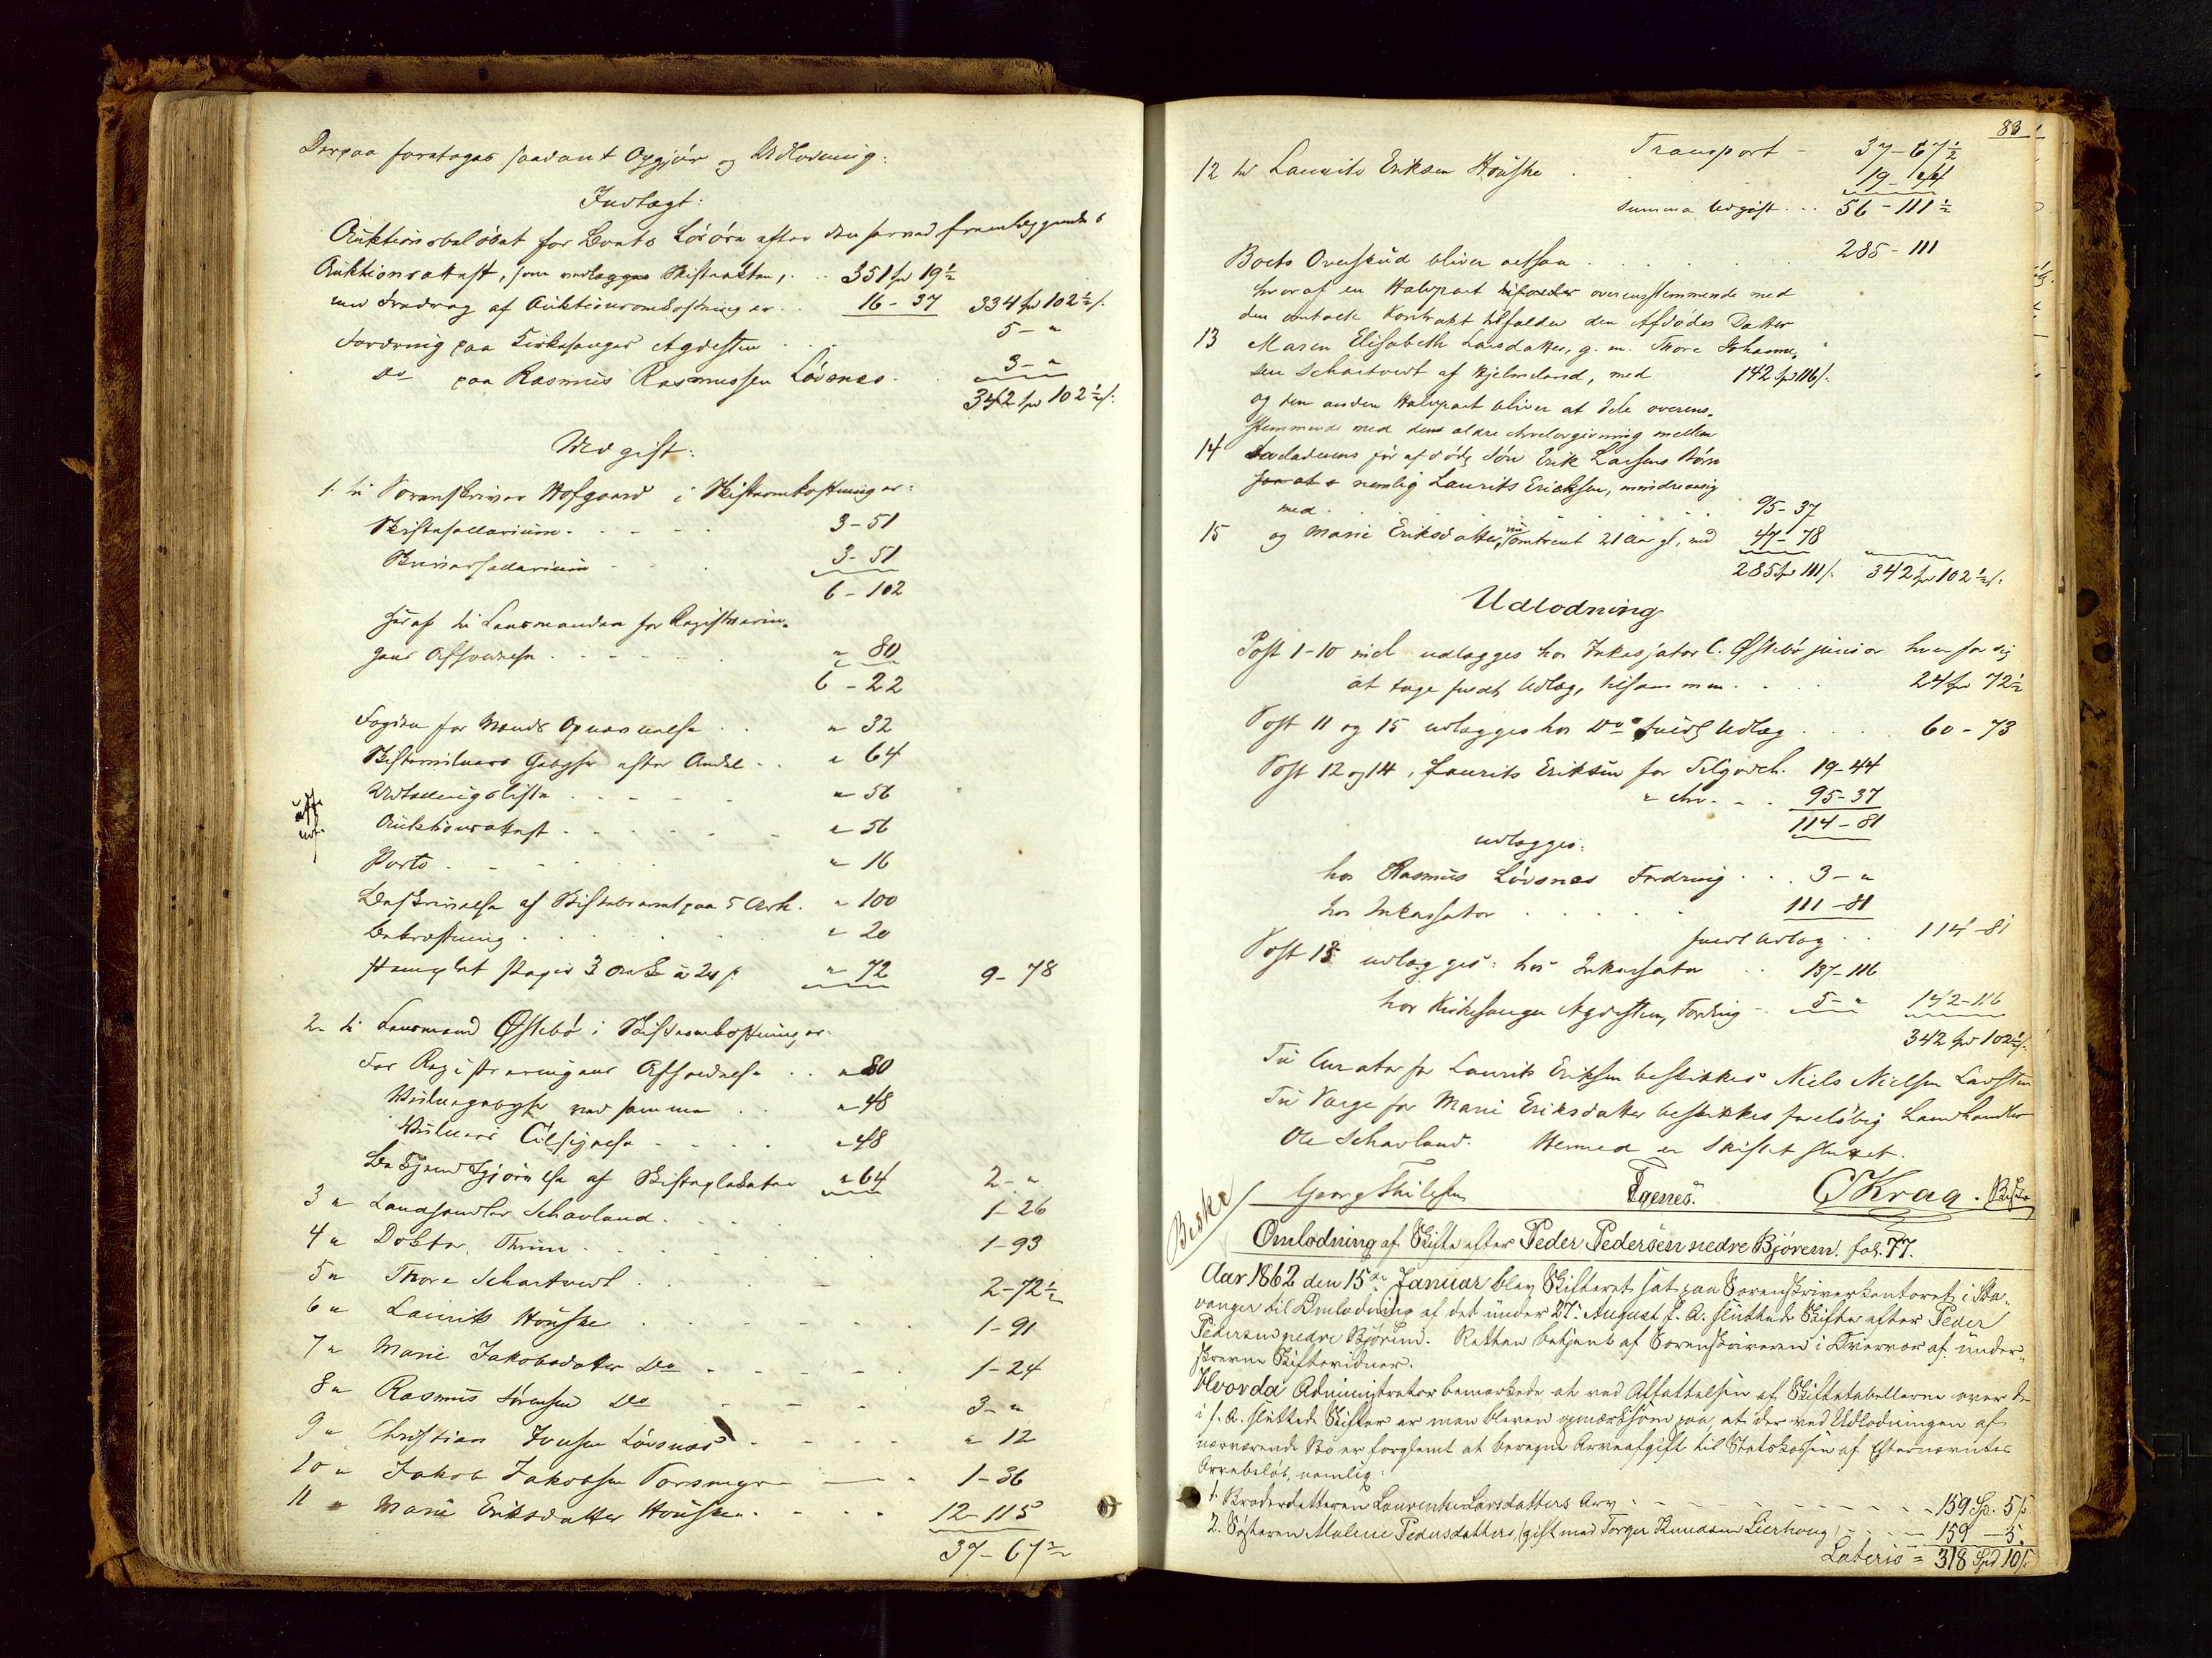 Derpaa foretoges saadant Opgjør og Udlodning:
Indtægt:
Auktionsbeløbet for Boets Løsøre efter den herved fremlæggende
Auktionsattest, som vedlægges Skifteakten, . . 351 Spd 19½
med Fradrag af Auktionsomkostninger . . 16 - 37 334 Spd 102½ s.
Fordring paa Kirkesanger Agdesteen . . . 5 - "
Do paa Rasmus Rasmussen Løvsnes . . 3 - "
342 Spd 102½ s.
Udgift:
1. til Sorenskriver Hofgaard i Skifteomkostninger:
Skiftesallarium . . . . 3 - 51
Skriversallarium . . . 3 - 51
6 - 102
heraf til Lensmanden for Registrerin-
gens Afholdelse . . . . . " 80
6 - 22
Fogden for Mænds Opnævnelse . . " 32
Skiftevidners Gebyhr efter Andel . . " 64
Udtællingsliste . . . . . " 56
Auktionsattest . . . . . . " 56
Porto . . . . . " 16
Beskrivelse af Skiftebrevet paa 5 Ark. " 100
Bekræftning . . . . . . " 20
stemplet Papir 3 Ark à 24 s. " 72 9 - 78
2 - til Lensmand Østebø i Skifteomkostninger.
For Registreringens Afholdelse . . " 80
Vidnegebyhr ved samme . . " 48
Vidners Tilsigelse . . . . " 48
Bekjendtgjørelse af Skifteplakaten " 64 2 - "
3 " Landhandler Schavland . . . 1 - 26
4 " Doktor Thrine . . . . . . 1 - 93
5 " Thore Schartvedt . . . 2 - 72½
6 " Laurits Houske . . . . . 1 - 91
7 " Marie Jakobsdatter Do . . . . 1 - 24
8 " Rasmus Sørensen Do . . . 3 - "
9 " Christian Iversen Løvsnes . . . . " 12
10 " Jakob Jakobsen Vormeyr . . 1 - 36
11 " Marie Eriksdatter Houske . . . . 12 - 115
37 - 67½
83
Transport - 37 - 67½
12 til Laurits Eriksen Houske . . . 19 - 44
summa Udgift . . . 56 - 111½
Boets Overskud bliver altsaa . . . . . 285 - 111
hvoraf en Halvpart overensstemmende med
den Kontrakt tilfalder den Afdødes Datter
13 Maren Elisabeth Larsdatter, g. m. Thore Johanne-
sen Schartvedt af Hjelmeland, med 142 Spd 116 s.
og den anden Halvpart bliver at dele overens-
stemmende med den ældre Arvelovgivning mellem
14 Arveladerens før afdøde Søn Erik Larsens Børn
nemlig Laurits Eriksen, mindreaarig
med . . . . . . . . 95 - 37
15 og Marie Eriksdatter, nu omtrent 21 Aar gl, med 47 - 78
285 Spd 111 s. 342 Spd 102½ s.
Udlodning
Post 1-10 incl udlægges hos Inkassator C. Østebø junior hver for sig
at tage fuldt Udlæg, tilsammen . . . . 24 Spd 72½
Post 11 og 15 udlægges hos Do fuldt Udlæg . . . . 60 - 73
Post 12 og 14, Laurits Eriksen for Tilgodeh. 19 - 44
" Arv . . . 95 - 37
114 - 81
udlægges:
hos Rasmus Løvsnes Fordring . . . 3 - "
hos Inkassator . . . . . . 111 - 81
fuldt Udlæg . . 114 - 81
Post 13 udlægges: hos Inkassator . . 137 - 116
hos Kirkesanger Agdesteen, Fordring - 5 - " 142 - 116
342 Spd 102½ s.
Til Curator for Laurits Eriksen beskikkes Niels Nielsen
Til Værge for Marie Eriksdatter beskikkes foreløbig Landhandler
Ole Schavland. Hermed er Skiftet sluttet.
Georg Thilesen Egenes. O Krag.
Beskr
Omlodning af Skifte efter Peder Pedersen nedre Bjørem. fol. 77.
Aar 1862 den 15de Januar blev Skifteret sat paa Sorenskriverkontoret i Sta-
vanger til Omlodning af det under 27. August f. A. sluttede Skifte efter Peder
Pedersen nedre Bjørem. Retten betjent af Sorenskriveren i Overvær af under-
skrevne Skiftevidner.
Hvorda Administrator bemærkede at ved Affattelsen af Skiftetabellerne over de
i f. A. sluttede Skifter er man bleven opmærksom paa, at der ved Udlodningen af
nærværende Bo er forglemt at beregne Arveafgift til Statskassen af Efternævntes
Arvebeløb, nemlig:
1. Broderdatteren Laurentse Larsdatters Arv . . . 159 Sp. 5 s.
2. Søsteren Malene Pedersdatters, (gift med Torger Knudsen Lierhoug) . . 159 - 5.
Lateris = 318 Spd 10 s.